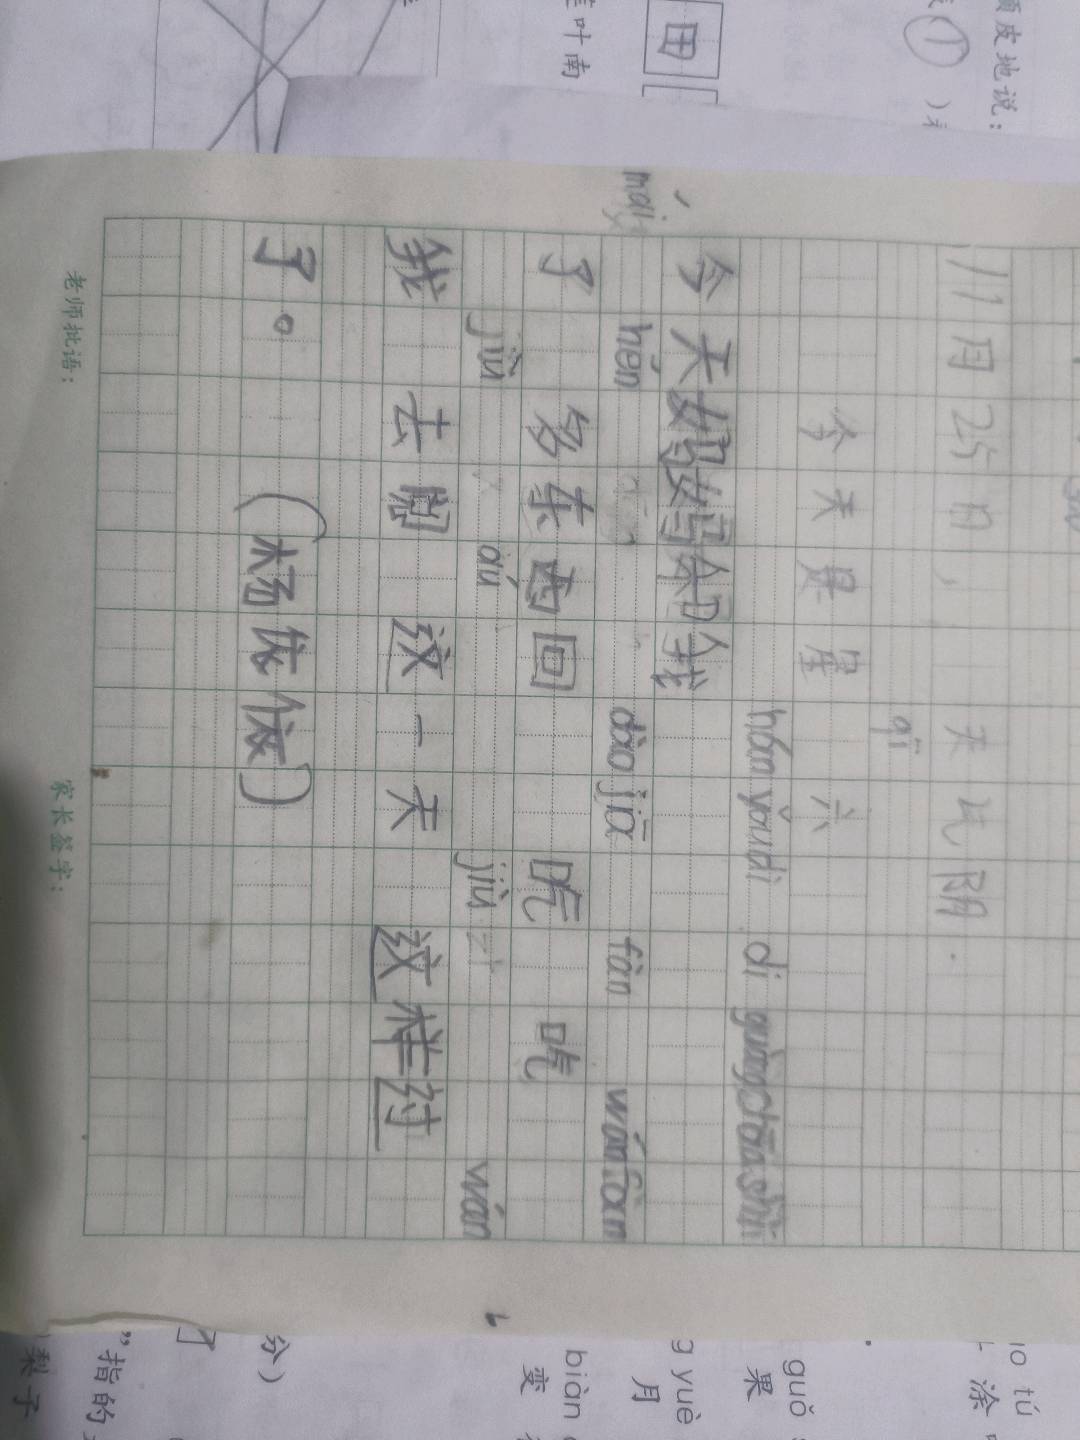 11月25日,天气阴.
qī
今天是星 六
hóan yǒu dì dì guàng chāo shì
今天妈妈和我
mǎi hěn dào jiā fàn wán fàn
了 多东西回 吃 吃
jiù jiù wán
我 去 这一天 这样过
了。 (杨依依)
老师批语: 家长签字:
顽皮地说:
叶南
田
guǒ
果
yuè
月
biàn
变
分)
”指的
梨子
tú
涂